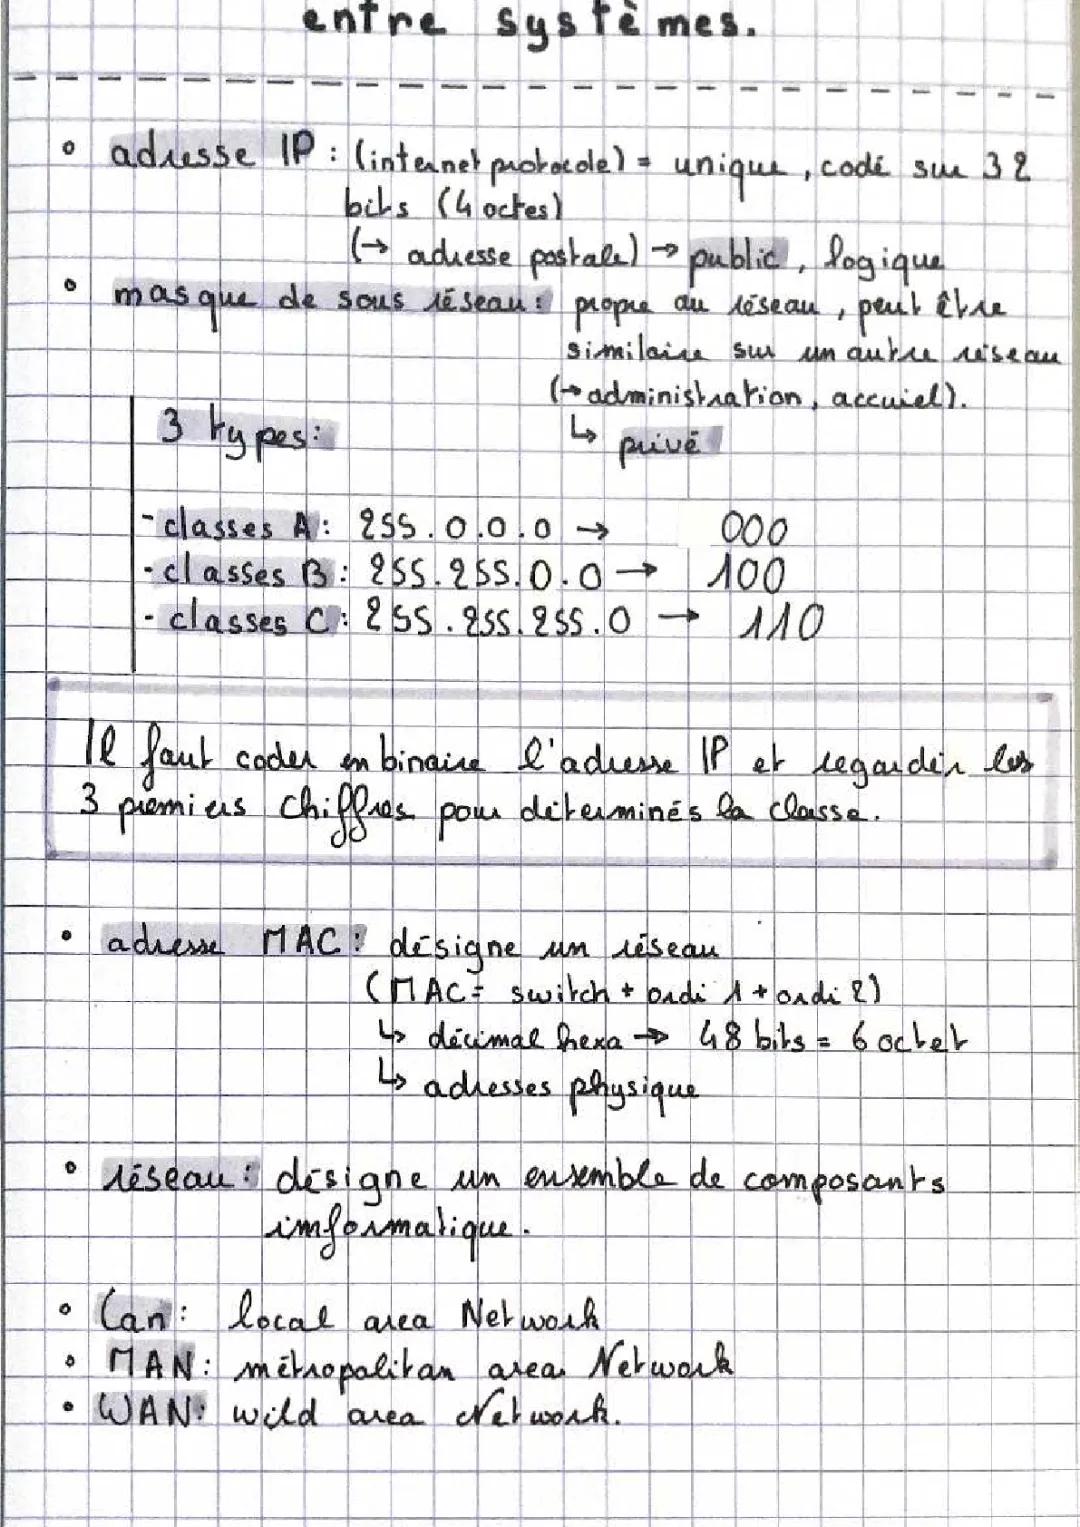 entre systèmes.
° adresse IP : (internet protocole) = unique, codé sur 32
bits (4 octes)
(→ adresse postale) → public, logique
° masque de sous réseau : propre au réseau, peut être
similaire sur un autre réseau
(→ administration, accuiel).
↳ privé
3 types :
- classes A : 255.0.0.0 → 000
- classes B : 255.255.0.0 → 100
- classes C : 255.255.255.0 → 110
Il faut coder en binaire l'adresse IP et regarder les
3 premiers chiffres pour déterminés la classe.
• adresse MAC : désigne un réseau
(MAC = switch + ordi 1 + ordi 2)
↳ décimal hexa → 48 bits = 6 octet
↳ adresses physique
° réseau : désigne un ensemble de composants
imformatique.
° Lan : local area Network
° MAN : métropolitan area Network
• WAN : wild area Network.